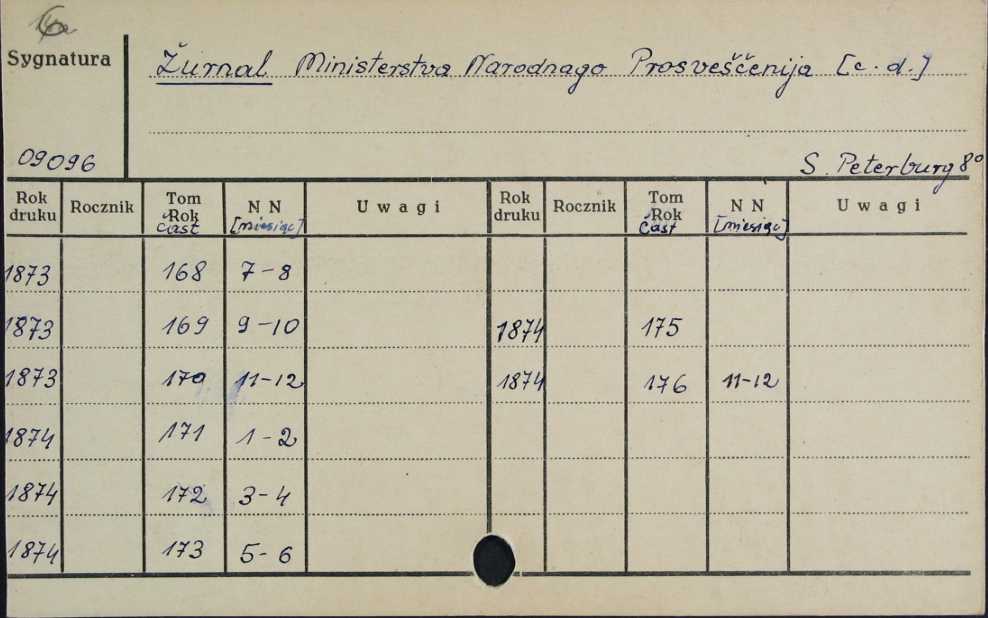 6a
Sygnatura
Žurnal Ministerstva Narodnago Prosveščenija [c. d.]
09096
S. Peterburg 8º
Rok druku Rocznik Tom Rok Čast N N [miesiąc] Uwagi Rok druku Rocznik Tom Rok Čast N N [miesiąc] Uwagi
1873 168 7-8
1873 169 9-10 1874 175
1873 170 11-12 1874 176 11-12
1874 171 1-2
1874 172 3-4
1874 173 5-6